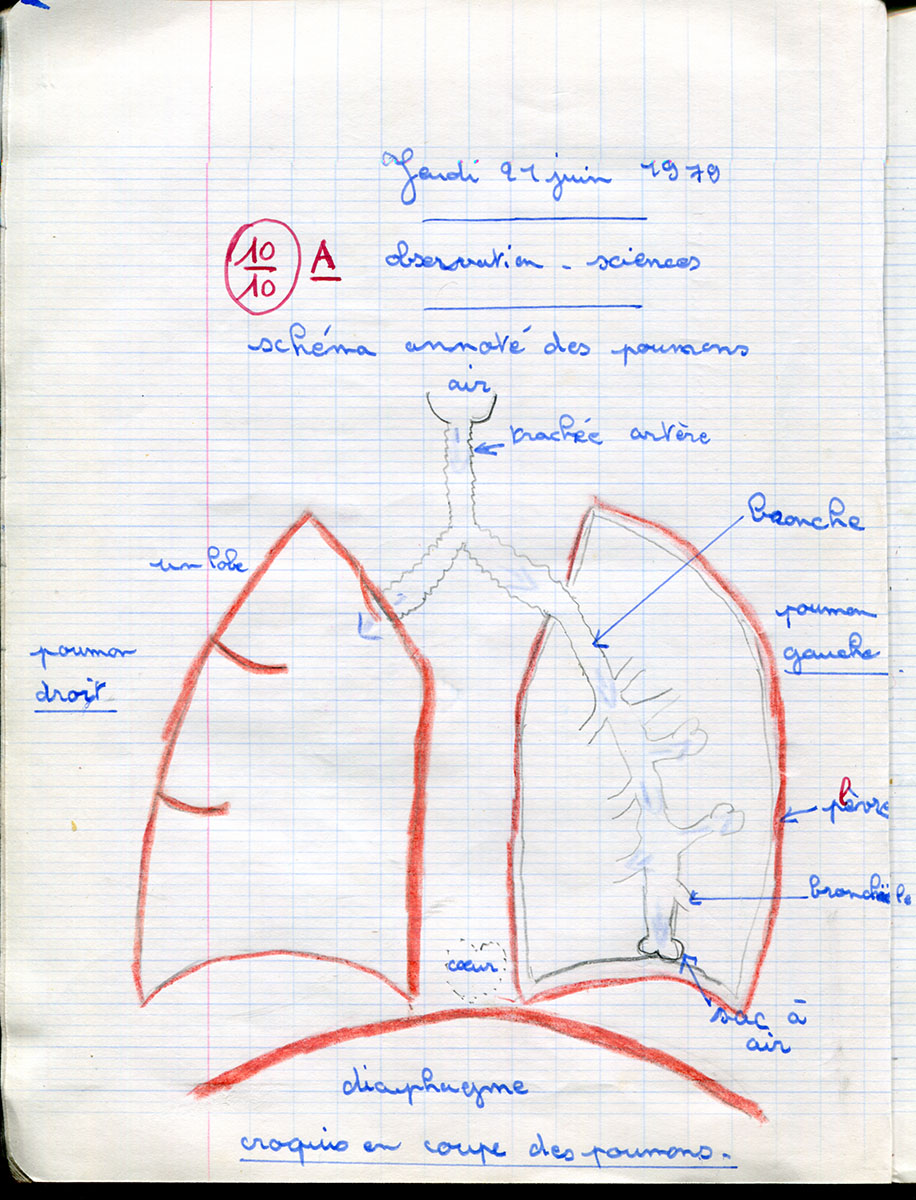 Jeudi 21 juin 1979
10
10
A
observation - sciences
schéma annoté des poumons
air
trachée artère
bronche
un lobe
poumon
gauche
poumon
droit
plèvre
bronchiole
cœur
sac à
air
diaphragme
croquis en coupe des poumons.